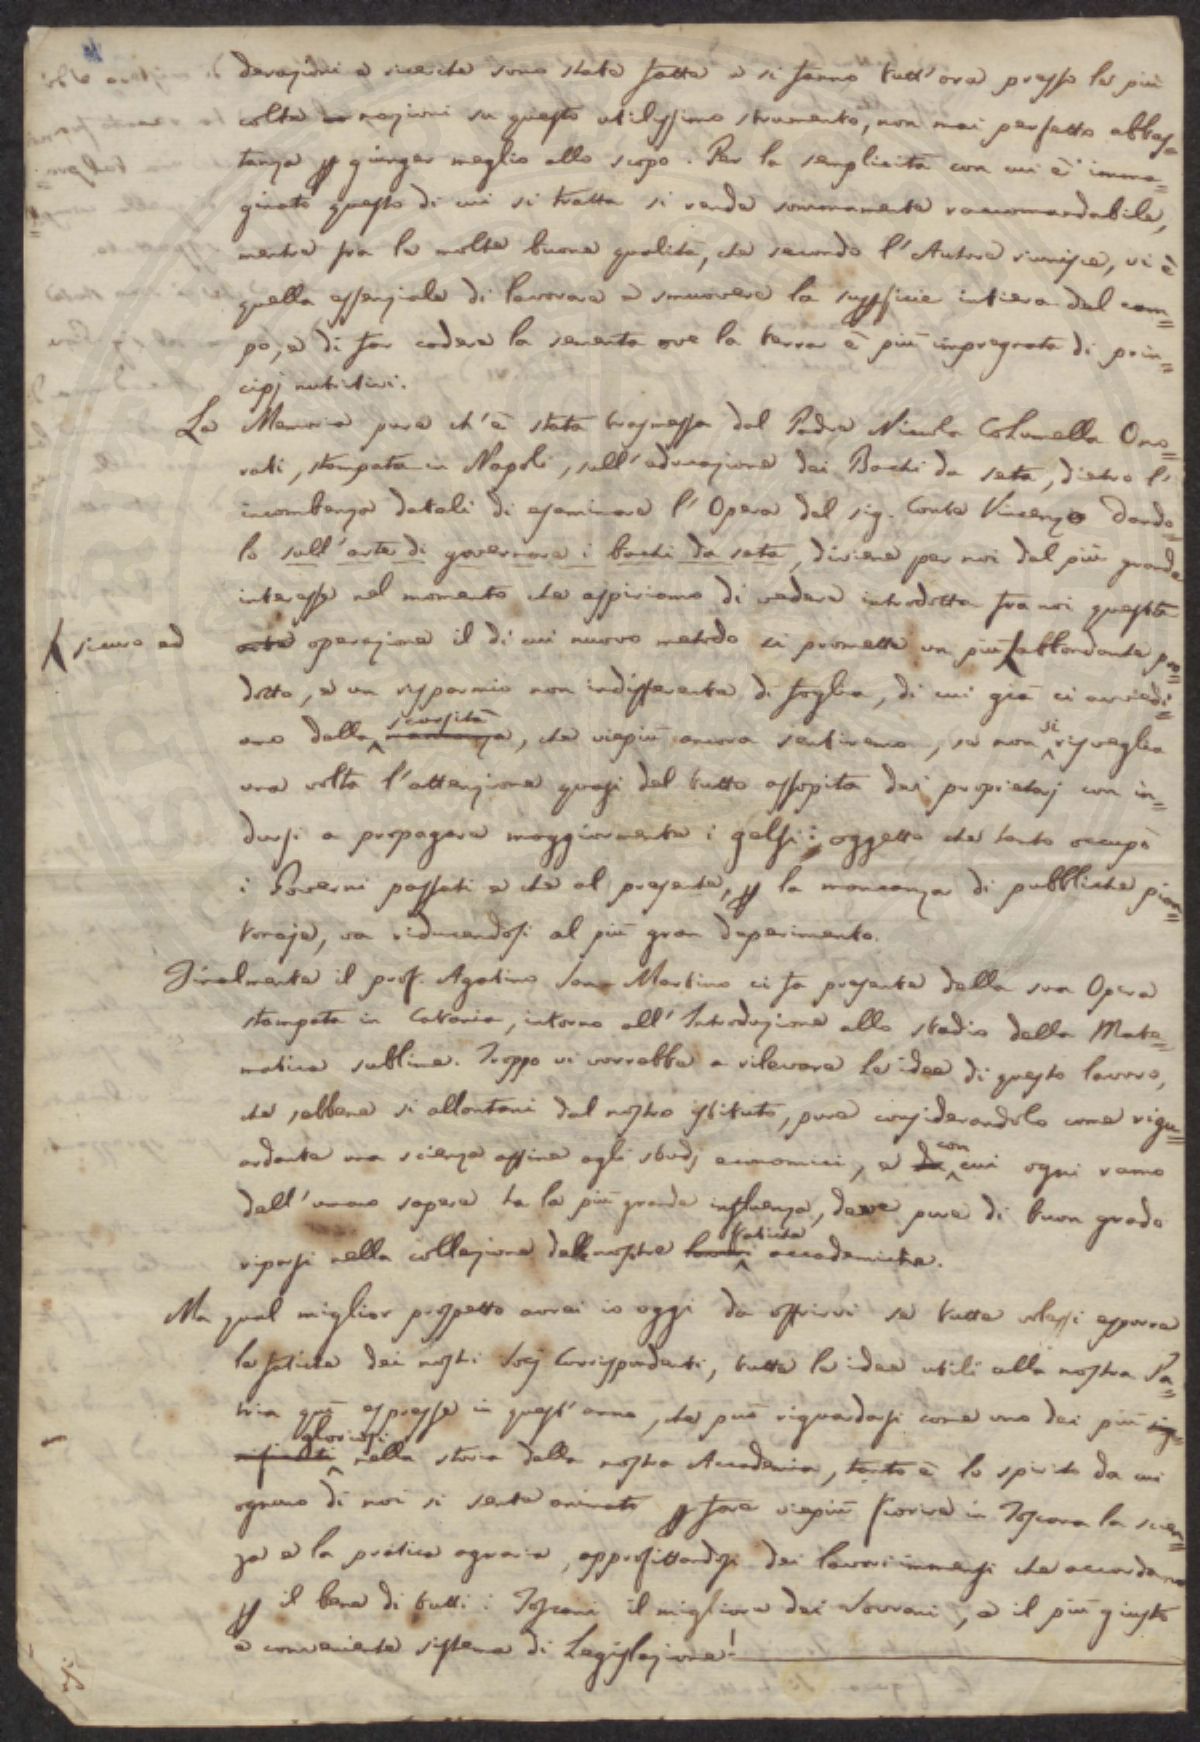 derazioni e ricerche sono state fatte e si fanno tutt'ora presso le più
colte nazioni su questo utilissimo strumento, non mai perfetto abbas=
tanza p giunger meglio allo scopo. Per la semplicità con cui è imma=
ginato questo di cui si tratta si rende sommamente raccomandabile,
mentre fra le molte buone qualità, che secondo l'Autore riunisce, vi è
quella essenziale di lavorare e smuovere la superficie intiera del cam=
po, e di far cadere la sementa ove la terra è più impregnata di prin=
cipj nutritivi.
La Memoria pure ch'è stata trasmessa dal Padre Nicola Columella Ono=
rati, stampata in Napoli, sull'educazione dei Bachi da seta, dietro l'
incombenza datali di esaminare l'Opera del sig. Conte Vincenzo Dando=
lo sull'arte di governare i bachi da seta, diviene per noi del più grande
interesse nel momento che aspiriamo di vedere introdotta fra noi questa
sicuro ed
arte operazione il di cui nuovo metodo ci promette un più abbondante pro=
dotto, e un risparmio non indifferente di foglia, di cui già ci avvedi=
amo della scarsità, che viepiù ancora sentiremo, se non si risveglia
una volta l'attenzione quasi del tutto assopita dei proprietarj con in=
dursi a propagare maggiormente i gelsi; oggetto che tanto occupò
i Governi passati e che al presente, p la mancanza di pubbliche pian=
tonaje, va riducendosi al più gran deperimento.
Finalmente il prof. Agatino San Martino ci fa presente della sua Opera
stampata in Catania, intorno all'Introduzione allo studio della Mate=
matica sublime. Troppo vi vorrebbe a rilevare le idee di questo lavoro,
che sebbene si allontani dal nostro istituto, pure considerandolo come rigu=
ardante una scienza affine agli studj economici, e di con cui ogni ramo
dell'umano sapere ha la più grande influenza, deve pure di buon grado
riporsi nella collezione delle nostre fatiche accademiche.
Ma qual miglior prospetto avrei io oggi da offrirvi se tutte volessi esporre
le fatiche dei nostri Socj Corrispondenti, tutte le idee utili alla nostra Pa=
tria quì espresse in quest'anno, che può riguardarsi come uno dei più
gloriosi nella storia della nostra Accademia, tanto è lo spirito da cui
ognuno di noi si sente animato p fare viepiù fiorire in Toscana la scien=
za e la pratica agraria, approfittandosi dei favori immensi che accordano
p il bene di tutti i Toscani il migliore dei Sovrani, e il più giusto
e conveniente sistema di Legislazione!